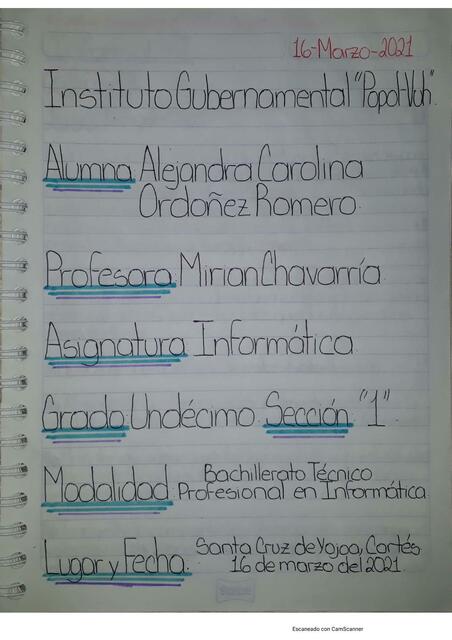 16-Marzo-2021
Instituto Gubernamental "Popol-Vuh".
Alumna Alejandra Carolina
Ordoñez Romero.
Profesora Mirian Chavarría.
Asignatura Informática
Grado Undécimo Sección "1".
Modalidad Bachillerato Técnico
Profesional en Informática
Lugar y Fecha. Santa Cruz de Yojoa, Cortés
16 de marzo del 2021
Escaneado con CamScanner